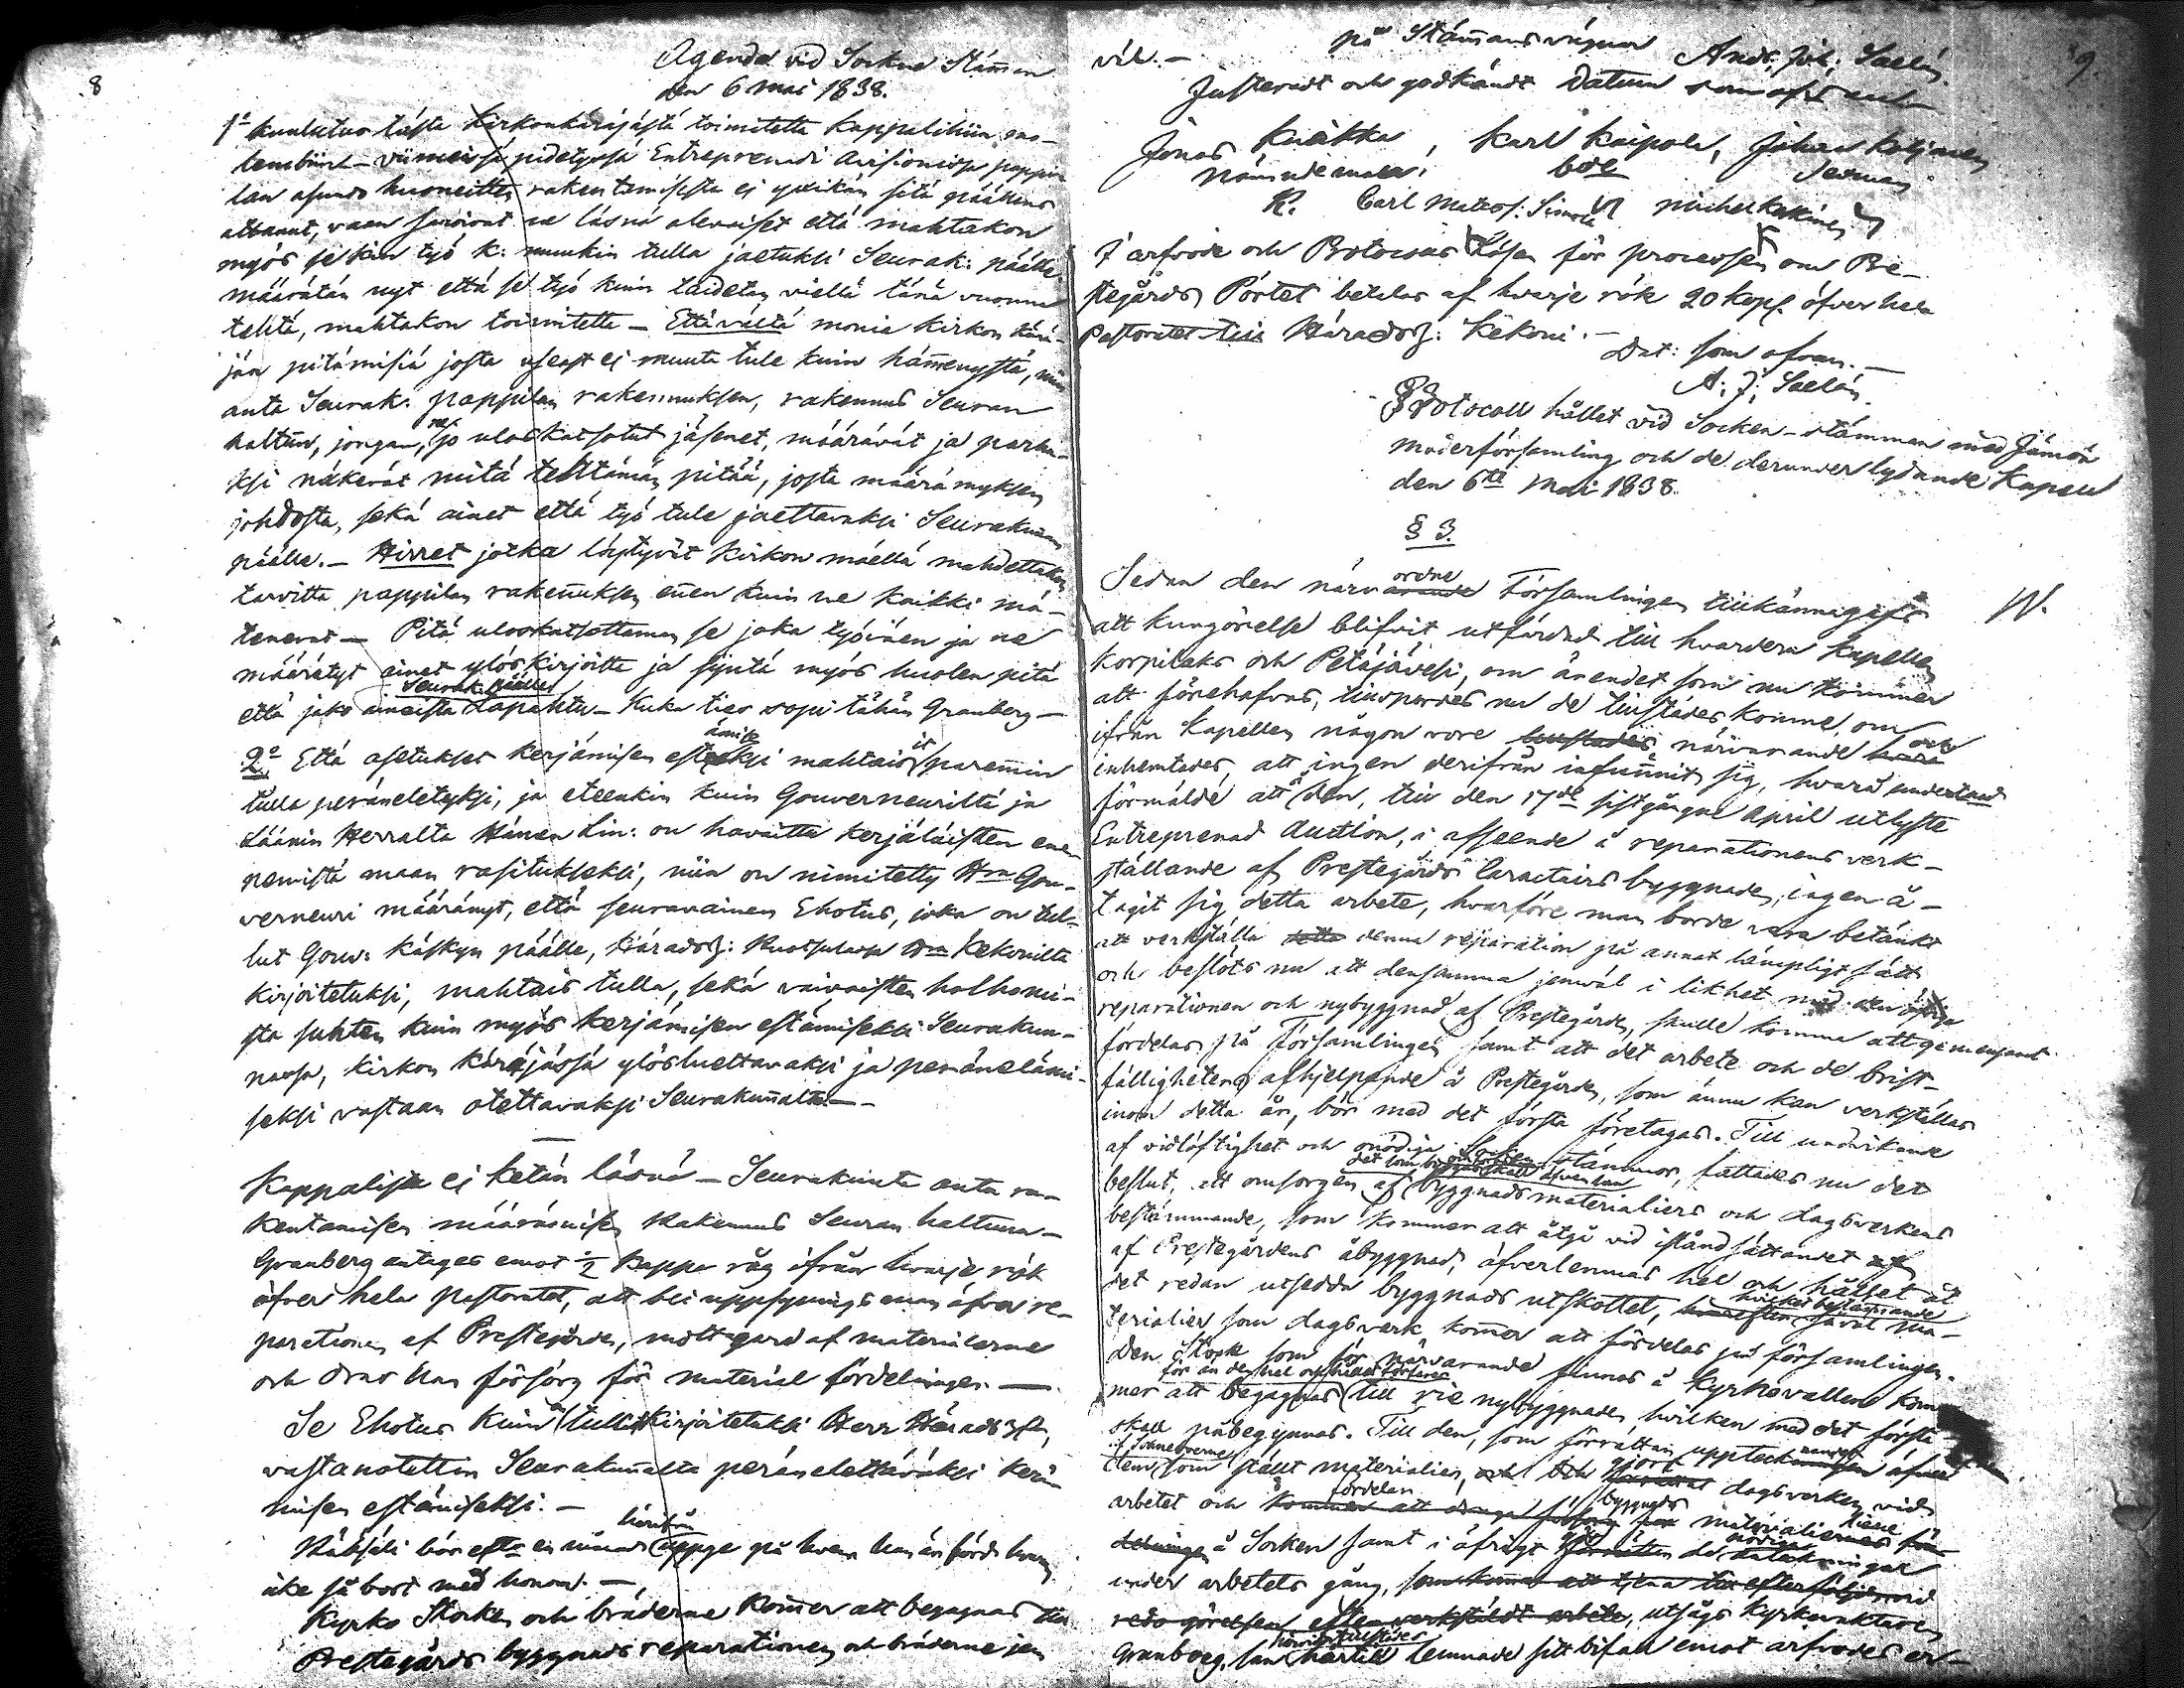 8
Agenda vid Sockne Stämman
den 6 mai 1838.
1o kuulutus tästä kirkonkäräjästä toimitettu kappelihin
viimeissä pidetyssä Entreprenadi Auctionissa pappi-
lan asundo huoneitten rakentamisesta ei yxikän sitä päällens
ottanut, vaan suoivat ne läsnä olevaiset että mahtakon
myös se kin työ k: muukin tulla jaetuksi Seurak: päälle
määrätän nyt että se työ kuin taidetan viellä tänä vuonna
tehtä, mahtakon toimitetta - Ettävältä monia kirkon kärä-
jän pitämisiä josta useast ei muuta tule kuin hämmenystä, niin
anta Seurak: pappilan rakennuksen, rakennus Seuran
haltuun, jongan, jo uloskatsotut jäsenet, määrävät ja parha-
ksi näkevät mitä tehttämän pitää, josta määrämyksen
johdosta, sekä ainet että työ tule jaettavaksi Seurakunnan
päälle. - Hirret jotka löytyvät kirkon mäellä mahdettakon
tarvitta pappilan rakennuksen ennen kuin ne kaikki mä-
tenevat - Pitä uloskatsottaman se joka työväen ja ne
määrätyt ainet ylöskirjoitta ja syntä myös huolen pitä
Seurak: päälle
että jako aineista tapahtu - Kuka ties sopi tähän Granberg -
2o Että asetukset kerjämisen estämiseksi mahtaisit paremmin
tulla peräneletyksi, ja eteenkin kuin Gouverneurilta ja
Läänin Herralta Hänen Lin: on havaittu kerjäläisten ene-
nemistä maan rasitukseksi, niin on nimitetty Hra Gou-
verneuri määränyt, että seuravainen Ehotus, joka on tul-
lut Gouv: käskyn päälle, Häradsh: Ruotsulassa Hra Kekonilta
kirjoitetuksi, mahtais tulla, sekä vaivaisten holhomi-
sta suhten kuin myös kerjämisen estämiseksi Seurakun-
nassa, kirkon käräjässä ylösluettavaksi ja peräneläni-
seksi vastaan otettavaksi Seurakunnalta. -
Kappalista ei ketän läsnä - Seurakunta anta ra-
kentamisen määräämisen Rakennus Seuran haltuun -
Granberg antages emot 1/2 kappa råg ifrån hvarje rök
öfver hela pastoratet, att bli uppsyningsman öfver re-
parationen af Prestegården, mottagard af materialerne
och drar han försörg för material fördelningen -
Se Ehotus kuin tullut kirjoitetuksi Herr Häradsh:,
vastanotettin Seurakunnalta peränelettäväksi kerjä-
misen estämiseksi. -
härifrån
Räbsäli bör efter en månad uppge på hvem han än förds hvem
åke så bort med honom. -
Kyrko Stocken och bräderne kommer att begagnas till
Prestegårds byggnads reparationen och bräderne jem

väl. -
på Stämmans vägnar
And. Joh: Saelén.
9.
Justeradt och godkändt Datum som ofvan
Jonas Kuokka, Karl Kaipola, Johan Kiljanen
nämndeman; bde Sexman
R. Carl Matts: Simola Michel Kakinen
I arfvode och Protocols Lösen för processen om Pre-
stegårds Pörtet betalas af hvarje rök 20 kop. öfver hela
Pastoratet till Häradsh: Kekoni. -
Dat: som ofvan. -
A: J: Saelén.
Protocoll hållet vid Socken-stämman med Jämsä
moderförsamling och de derunder lydande Kapell
den 6te Maii 1838.
§ 3.
ordne
Sedan den närvarande Församlingen tillkännagifs
att kungörelse blifvit utfärdad till hvardera kapellen
Korpilaks och Petäjävesi, om ärendet som nu kommer
att förehafvas, tillspordes nu de tillstädes komne, om
ifrån Kapellen någon vore tillstädes närvarande och
inhemtades, att ingen derifrån infunnit sig, hvarå undertecknad
förmälde att å den, till den 17de sistgångne April utlyste
Entreprenad Auction, i afseende å reparationens verk-
ställande af Prestegårds Caractairs byggnaden, ingen å-
tagit sig detta arbete, hvarföre man borde vara betänkt
att verkställa detta denna reparation på annat lämpligt sätt
och beslöts nu att densamma jemväl i likhet med den öfriga
reparationen och nybyggnad af Prestegården, skulle komma att gemensamt
fördelas på Församlingen samt att det arbete och de brist-
fälligheters afhjelpande å Prestegården, som ännu kan verkställas
inom detta år, bör med det första företagas. Till undvikande
af vidlöftighet och onödiga Socken stämmor, fattades nu det
beslut, att omsorgen af byggnadsmaterialiers och dagsverkens
bestämmande, som kommer att åtgå vid iståndsättandet af
af Prestegårdens åbyggnad, öfverlemnas hel och hållet åt
det redan utsedda byggnads utskottet, hvarefter såväl ma-
terialier som dagsverk kommer att fördelas på församlingen.
Den Stock som för närvarande finnas å Kyrkovallen kom-
mer att begagnas till rie nybyggnaden hvilken med det första
skall påbegynnas. Till den, som förrättar uppteckningen öfver
dem som ställt materialier, och gjort dagsverken vid
arbetet och fördelar byggnads materialierne
å Socken samt i öfrigt gör de nödige anteckningar
under arbetets gång, som kommer att tjena till efterföljd vid
redo görelsen efter verkstäldt arbete, utsågs kyrkovaktaren
Granberg, som härtill lemnade sitt bifall emot arfvodes er-